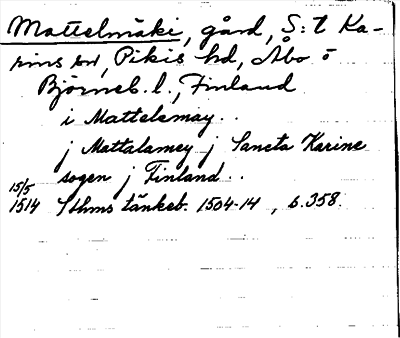 Mattelmäki, gård, S:t Ka-
rins sn, Pikis hd, Åbo o
Björneb. l., Finland
i Mattelemay..
j Mattalamey j Sancta Karine
sogen j Finland..
15/5
1514 Sthms tänkeb. 1504-14, s. 358.